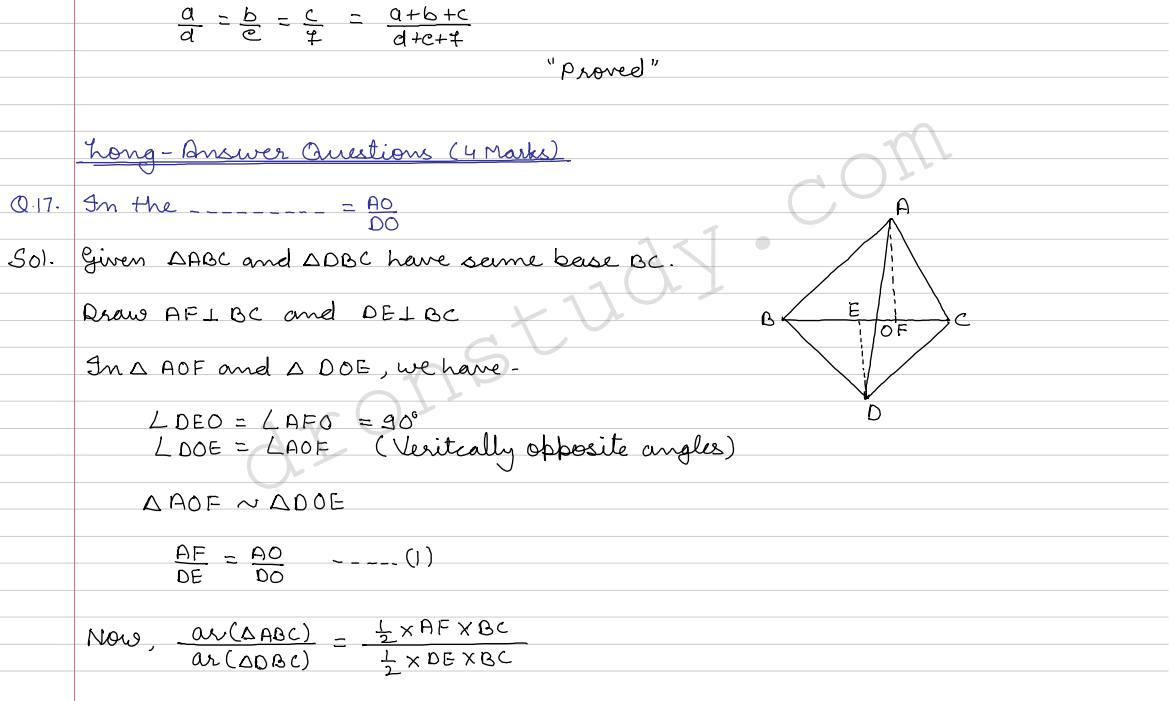 a/d = b/e = c/f = a+b+c/d+e+f
"Proved"
Long-Answer Questions (4 Marks)
Q.17. In the ---------- = AO/DO
Sol. Given △ABC and △DBC have same base BC.
Draw AF⊥BC and DE⊥BC
In △ AOF and △ DOE, we have-
∠DEO = ∠AFO = 90°
∠DOE = ∠AOF (Veritcally opposite angles)
△AOF ~ △DOE
AF/DE = AO/DO ------(1)
Now, ar(△ABC)/ar(△DBC) = ½ × AF × BC/½ × DE × BC
A
B
E
O F
C
D
dronstudy.com